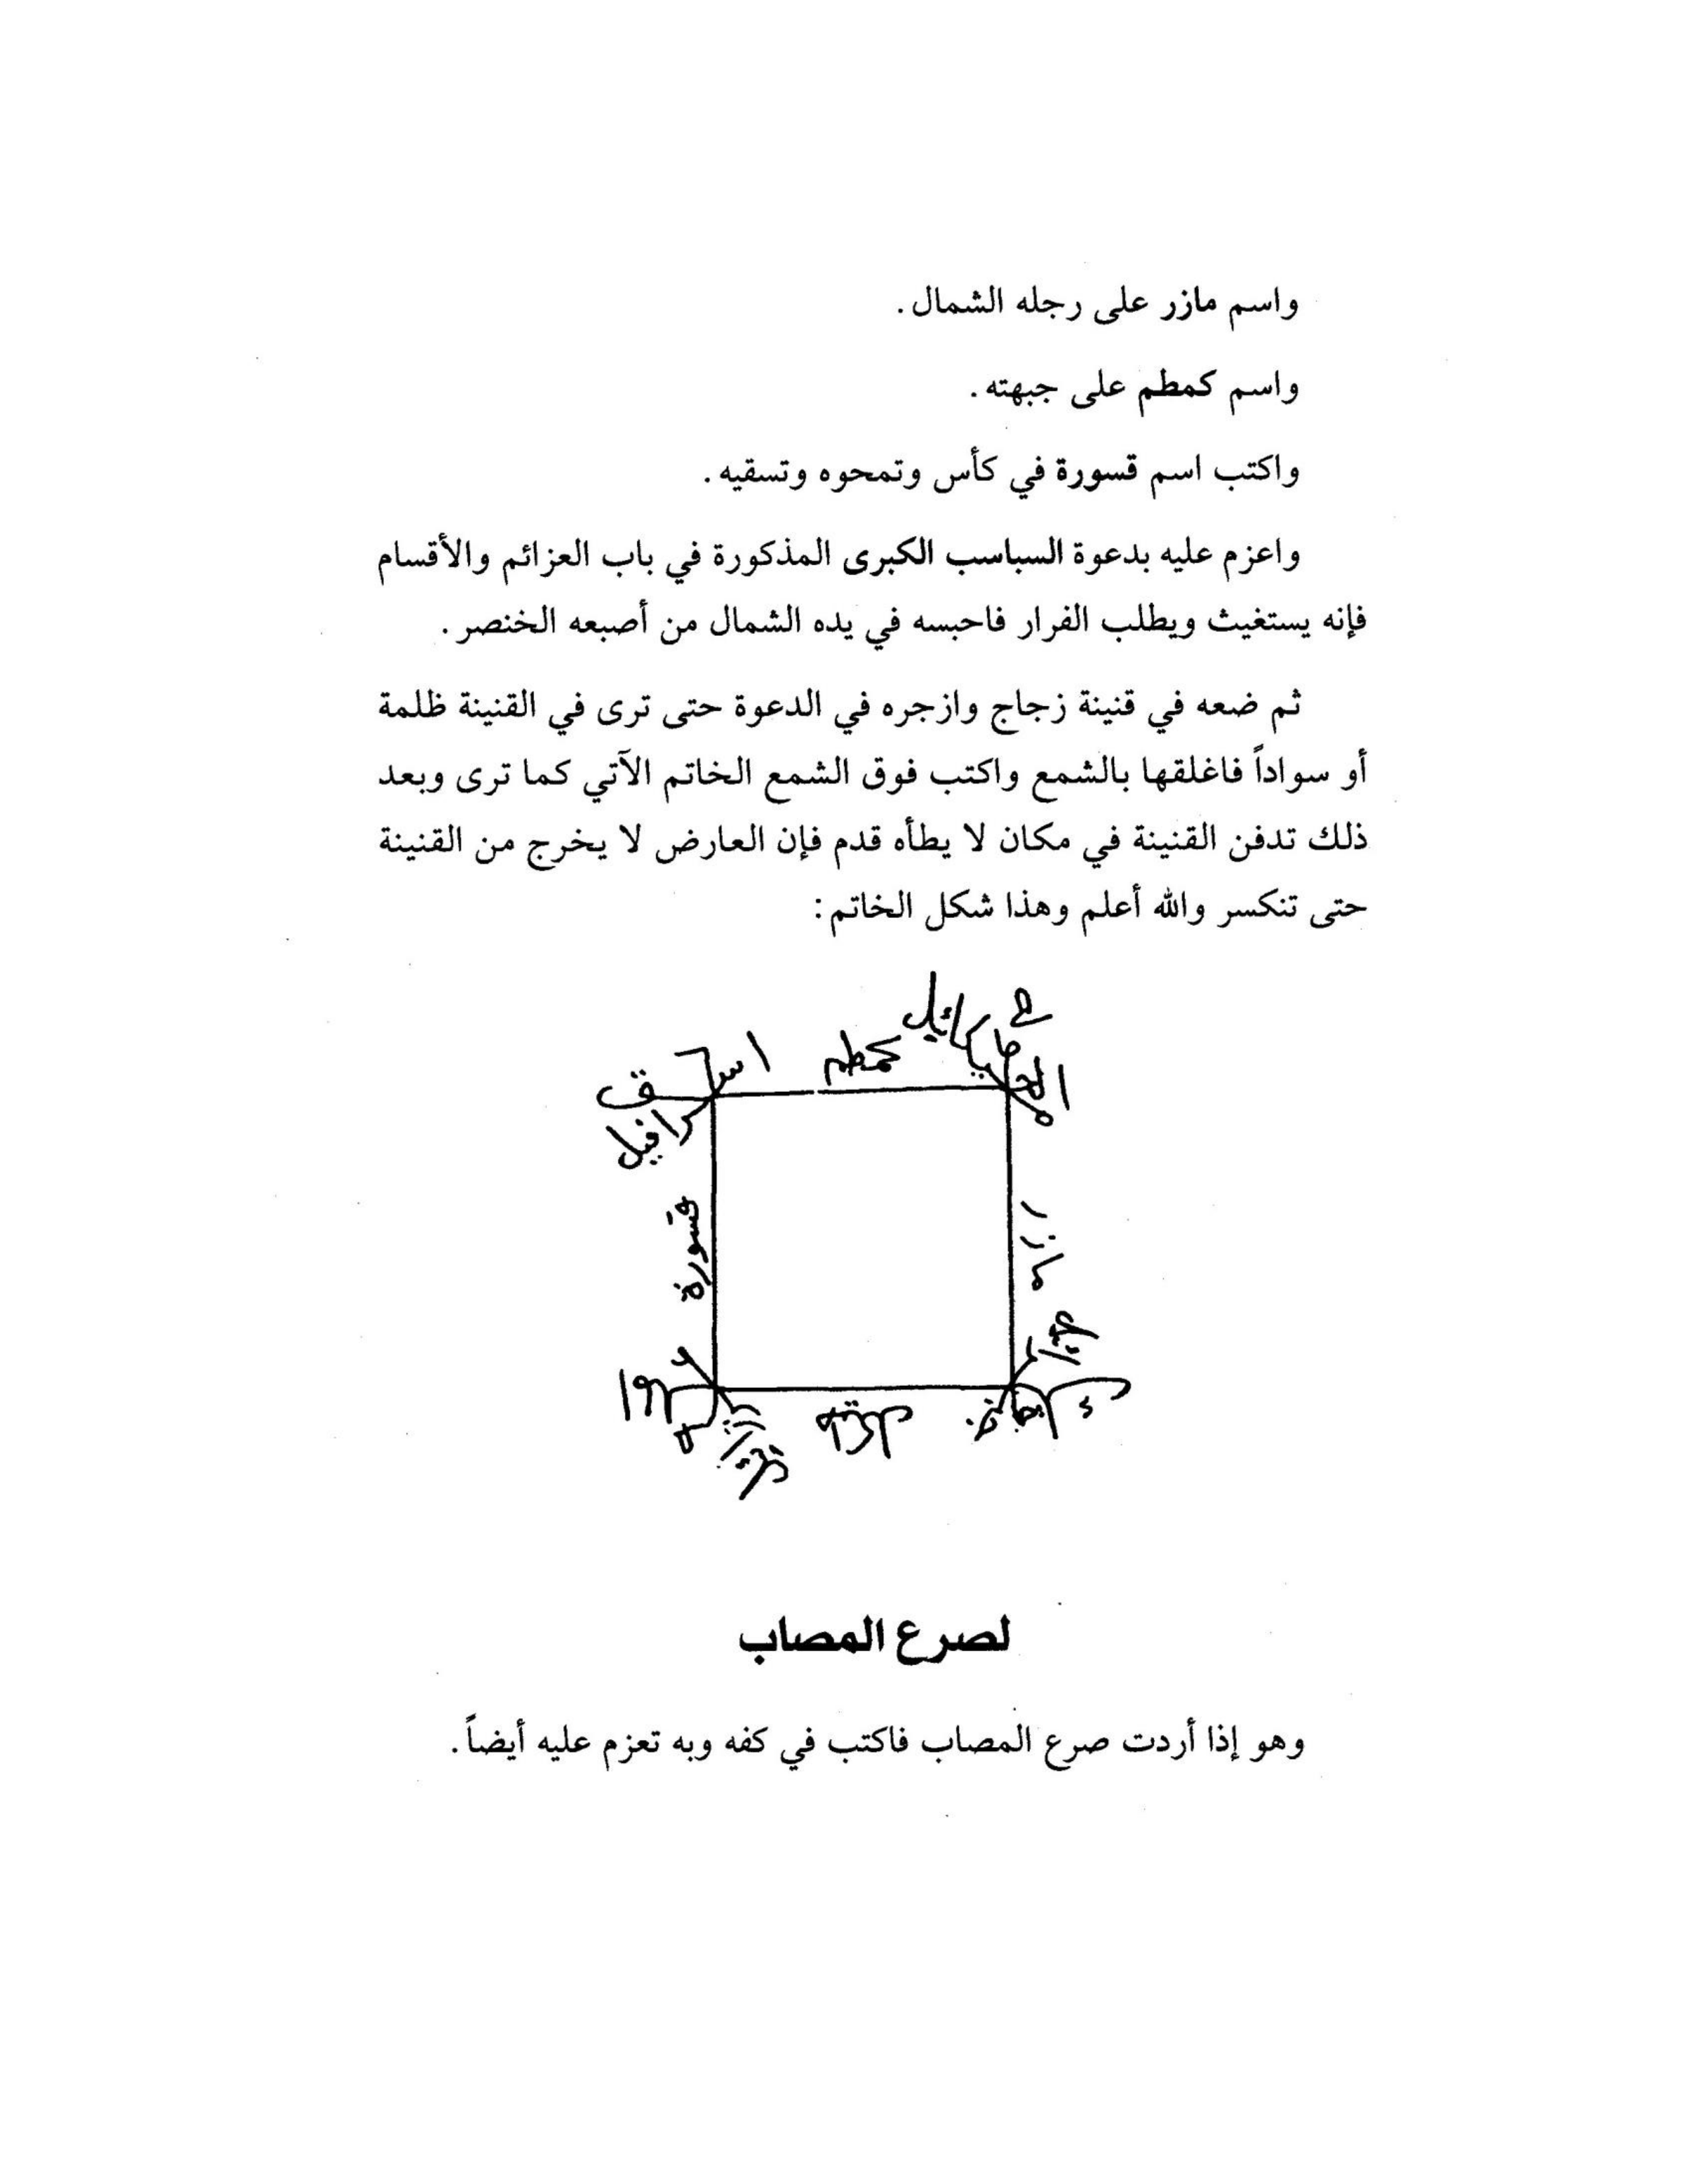 واسم مازر على رجله الشمال.
واسم كمطم على جبهته.
واكتب اسم قسورة في كأس وتمحوه وتسقيه.
واعزم عليه بدعوة السباسب الكبرى المذكورة في باب العزائم والأقسام
فإنه يستغيث ويطلب الفرار فاحبسه في يده الشمال من أصبعه الخنصر.
ثم ضعه في قنينة زجاج وازجره في الدعوة حتى ترى في القنينة ظلمة
أو سواداً فاغلقها بالشمع واكتب فوق الشمع الخاتم الآتي كما ترى وبعد
ذلك تدفن القنينة في مكان لا يطأه قدم فإن العارض لا يخرج من القنينة
حتى تنكسر والله أعلم وهذا شكل الخاتم:
كمطم
مازر
قسورة
طيكل
لصرع المصاب
وهو إذا أردت صرع المصاب فاكتب في كفه وبه تعزم عليه أيضاً.